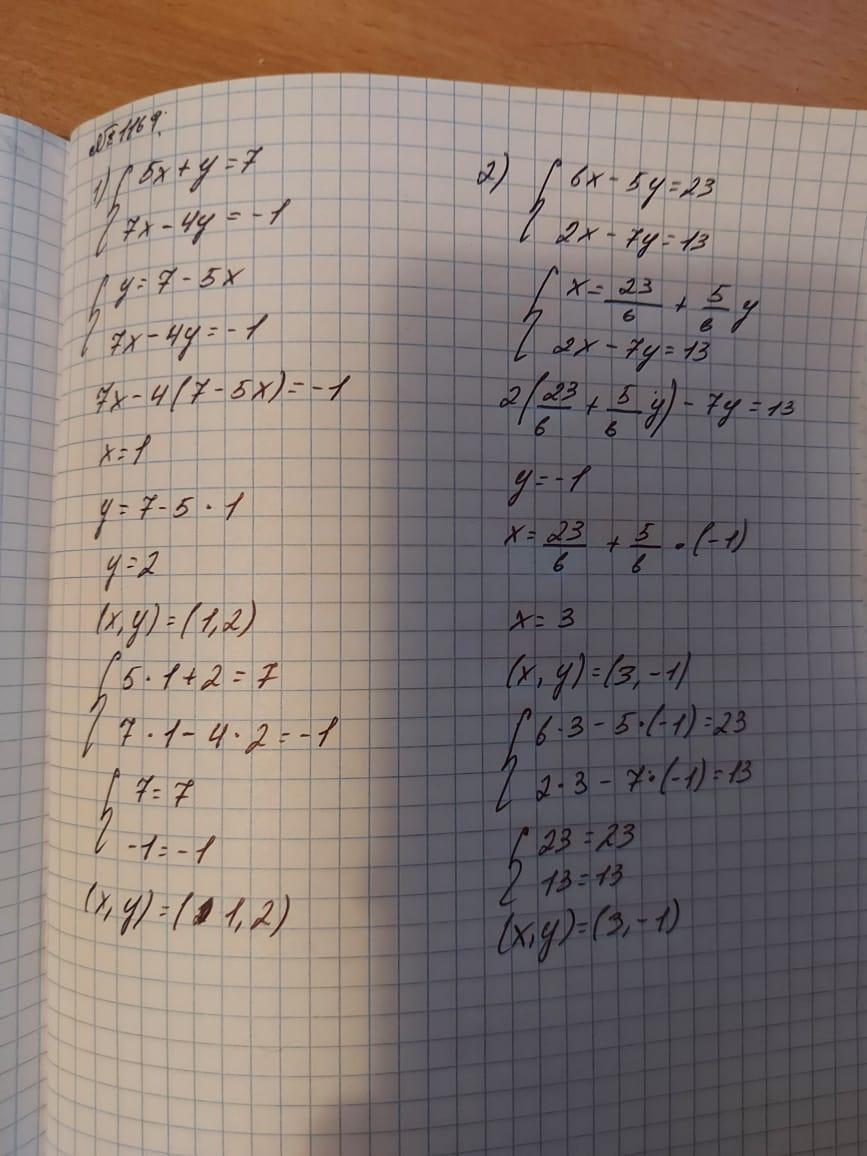 №1169.
1) { 5x + y = 7
7x - 4y = -1
{ y = 7 - 5x
7x - 4y = -1
7x - 4(7 - 5x) = -1
x = 1
y = 7 - 5 · 1
y = 2
(x, y) = (1, 2)
{ 5 · 1 + 2 = 7
7 · 1 - 4 · 2 = -1
{ 7 = 7
-1 = -1
(x, y) = (1, 2)
2) { 6x - 5y = 23
2x - 7y = 13
{ x = 23/6 + 5/6 y
2x - 7y = 13
2(23/6 + 5/6 y) - 7y = 13
y = -1
x = 23/6 + 5/6 · (-1)
x = 3
(x, y) = (3, -1)
{ 6 · 3 - 5 · (-1) = 23
2 · 3 - 7 · (-1) = 13
{ 23 = 23
13 = 13
(x, y) = (3, -1)